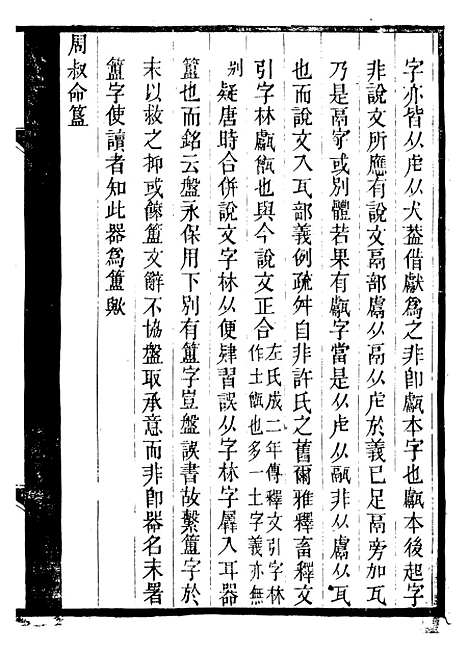 字亦皆从虍从犬葢借獻為之非卽甗本字也甗本後起字
非說文所應有說文鬲部鬳从鬲从虍於義已足鬲旁加瓦
乃是鬲字或別體若果有甗字當是从虍从甂非从鬳从瓦
也而說文入瓦部義例疏舛自非許氏之舊爾雅釋畜釋文
引字林甗甑也與今說文正合左氏成二年傳釋文引字林
作土甑也多一土字義亦無
別疑唐時合併說文字林以便肄習誤以字林字羼入耳器
簠也而銘云盤永保用下別有簠字豈盤誤書故繫簠字於
末以救之抑或餗簠文辭不協盤取承意而非卽器名末署
簠字使讀者知此器爲簠歟
周叔命簋